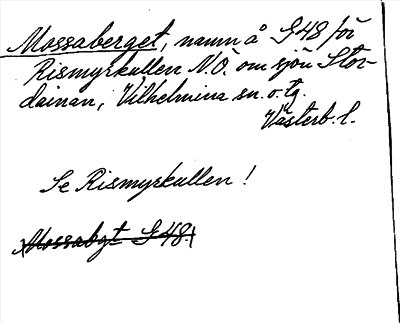 Mossaberget, namn å G48 för
Rismyrkullen N.O. om sjön Stor-
dainan, Vilhelmina sn. o. tg.
Västerb. l.
Se Rismyrkullen !
Mossabgt G48.